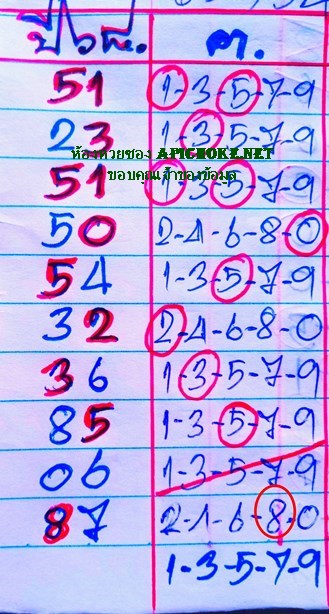 51 1-3-5-7-9
23 1-3-5-7-9
ห้องหวยซอง APICHOKE.NET
51 1-3-5-7-9
ขอบคุณเจ้าของข้อมูล
50 2-4-6-8-0
54 1-3-5-7-9
32 2-4-6-8-0
36 1-3-5-7-9
85 1-3-5-7-9
06 1-3-5-7-9
87 2-4-6-8-0
1-3-5-7-9